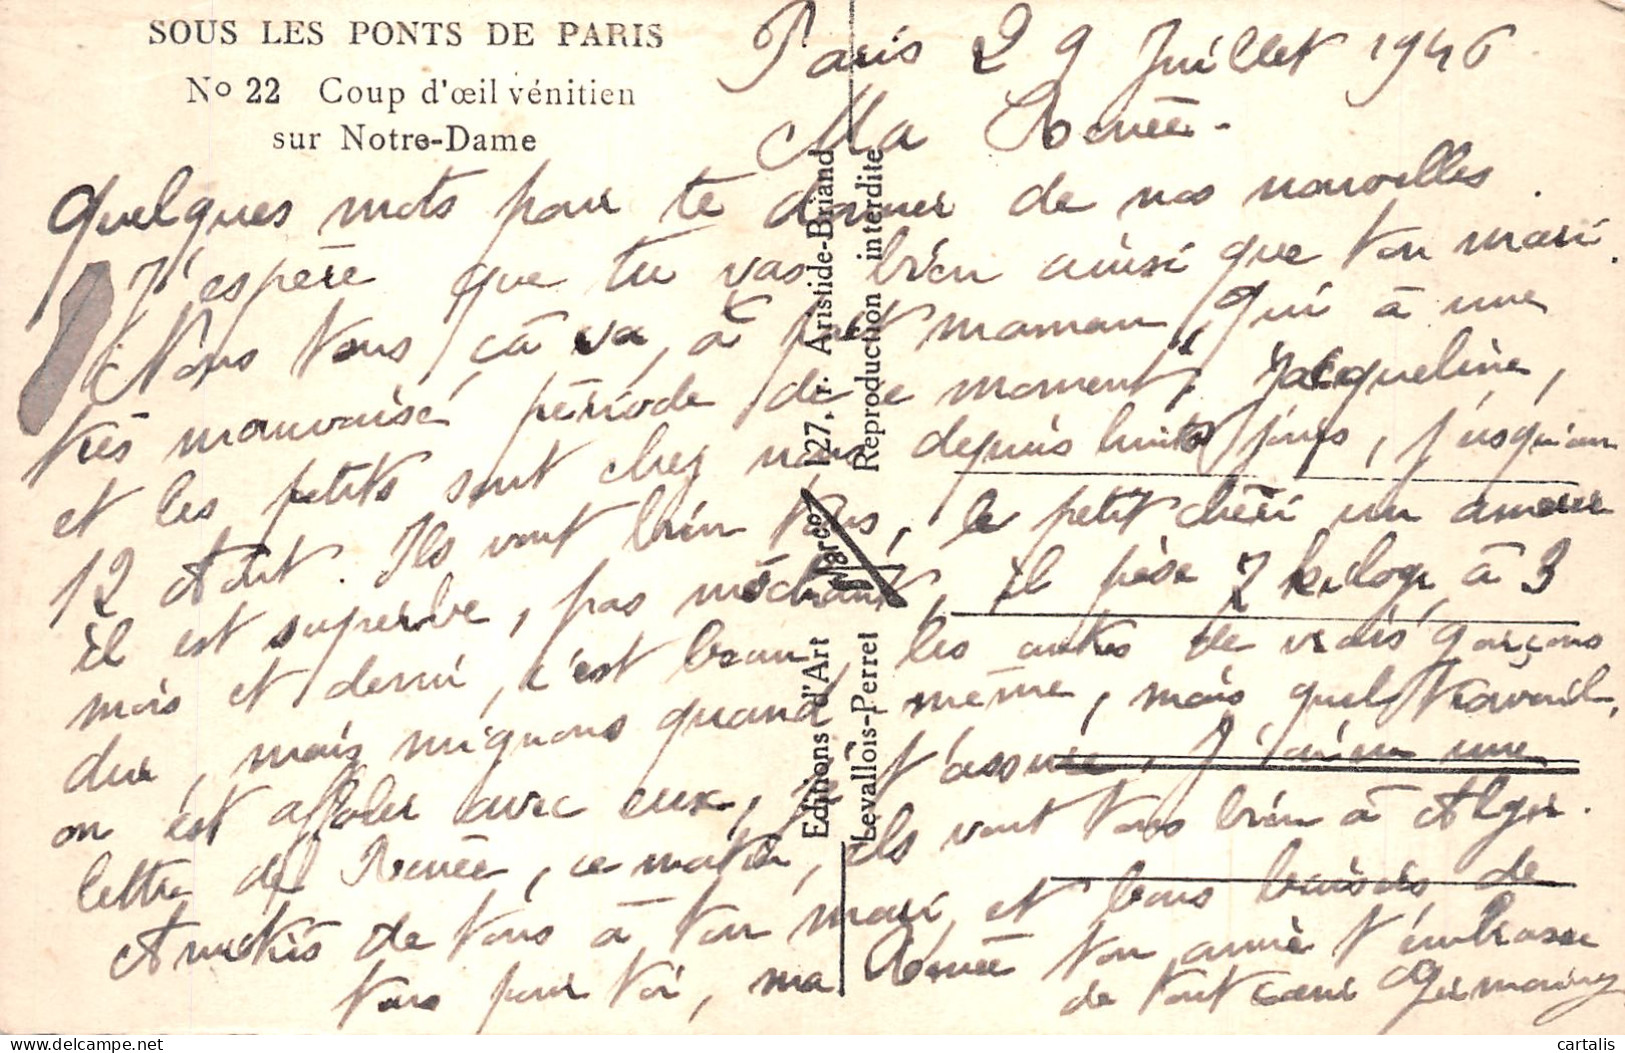 SOUS LES PONTS DE PARIS
No 22 Coup d'œil vénitien
sur Notre-Dame
Paris 29 Juillet 1946
Ma Renée -
Quelques mots pour te donner de nos nouvelles.
J'espère que tu vas bien ainsi que ton mari.
Nous tous ça va, à part maman, qui à une
très mauvaise période de ce moment, Jacqueline,
et les petits sont chez nous depuis huit jours, jusqu'au
12 Août. Ils vont bien tous, le petit chéri un amour
il est superbe, pas méchant, il pèse 7 kilogs à 3
mois et demi, c'est beau, les autres de vrais garçons
dur, mais mignons quand même, mais quel travail,
on est affoler avec eux, je t'assure, J'ai eu une
lettre de Renée, ce matin, ils vont tous bien à Alger.
Amitiés de tous à ton mari, et bons baisers de
tous pour toi, ma Renée ton amie t'embrasse
de tout cœur Germaine
Editions d'Art Yarco 127, r. Aristide-Briand
Levallois-Perret Reproduction interdite
cartalis